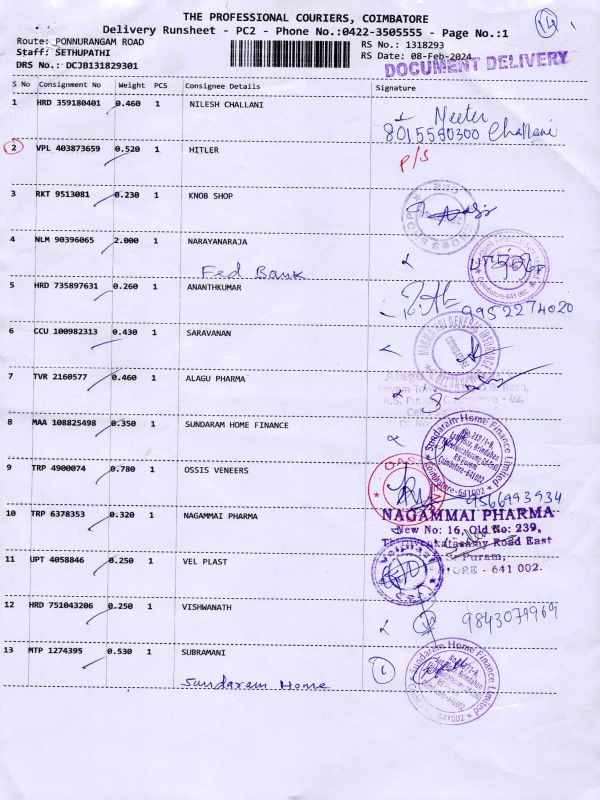 14
THE PROFESSIONAL COURIERS, COIMBATORE
Delivery Runsheet - PC2 - Phone No.:0422-3505555 - Page No.:1
Route: PONNURANGAM ROAD
Staff: SETHUPATHI
DRS No.: DCJB131829301
RS No.: 1318293
RS Date: 08-Feb-2024
DOCUMENT DELIVERY
S No Consignment No Weight PCS Consignee Details Signature
1 HRD 359180401 0.460 1 NILESH CHALLANI
Meeter
8015590300 Challani
2 VPL 403873659 0.520 1 HITLER P/S
3 RKT 9513081 0.230 1 KNOB SHOP
4 NLM 90396065 2.000 1 NARAYANARAJA
Fed Bank
Coimbatore-641 002
5 HRD 735897631 0.260 1 ANANTHKUMAR
9952274020
6 CCU 100982313 0.430 1 SARAVANAN
7 TVR 2160577 0.460 1 ALAGU PHARMA
8 MAA 108825498 0.350 1 SUNDARAM HOME FINANCE
Sundaram Home Finance Limited
Coimbatore-641002
9 TRP 4900074 0.780 1 OSSIS VENEERS
9566993934
10 TRP 6378353 0.320 1 NAGAMMAI PHARMA
NAGAMMAI PHARMA
New No: 16, Old No: 239,
Road East
Puram,
ORE - 641 002.
11 UPT 4058846 0.250 1 VEL PLAST
Velplast
12 HRD 751043206 0.250 1 VISHWANATH
9843079969
13 MTP 1274395 0.530 1 SUBRAMANI
Sundaram Home
Sundaram Home Finance Limited